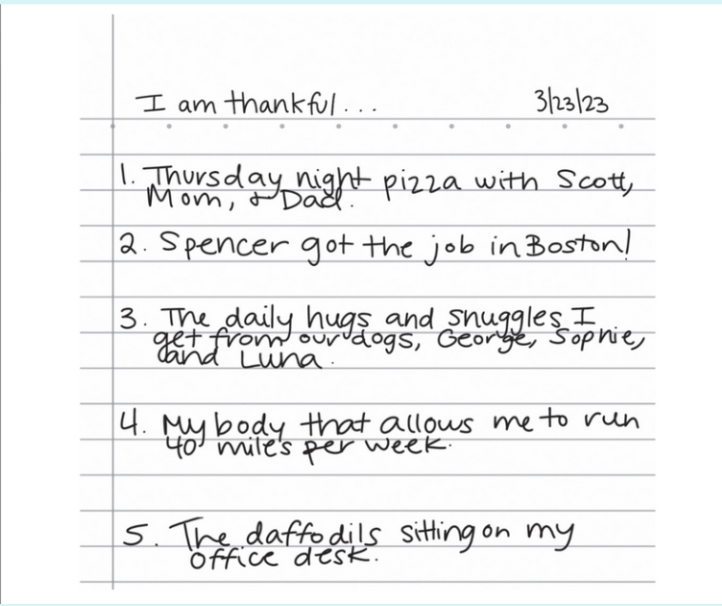 I am thankful... 3/23/23
1. Thursday night pizza with Scott,
Mom, & Dad.
2. Spencer got the job in Boston!
3. The daily hugs and snuggles I
get from our dogs, George, Sophie,
and Luna.
4. My body that allows me to run
40 miles per week.
5. The daffodils sitting on my
office desk.